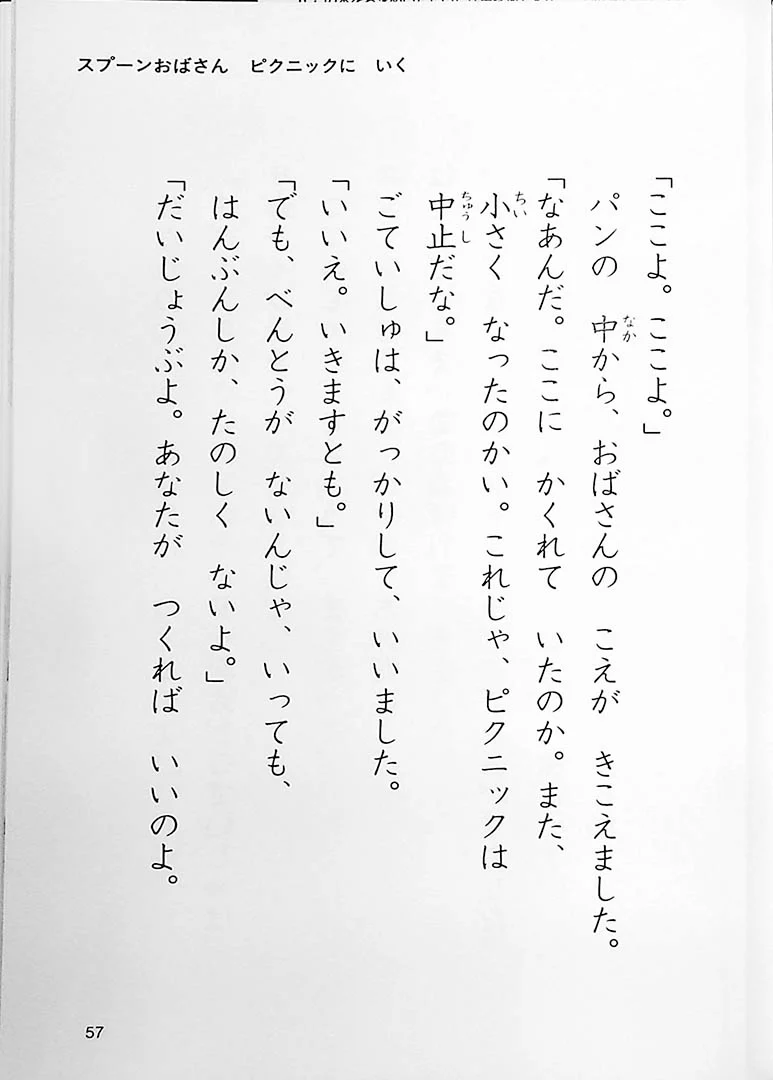 スプーンおばさん　ピクニックに　いく
「ここよ。ここよ。」
パンの　中から、おばさんの　こえが　きこえました。
「なあんだ。ここに　かくれて　いたのか。また、
小さく　なったのかい。これじゃ、ピクニックは
中止だな。」
ごていしゅは、がっかりして、いいました。
「いいえ。いきますとも。」
「でも、べんとうが　ないんじゃ、いっても、
はんぶんしか、たのしく　ないよ。」
「だいじょうぶよ。あなたが　つくれば　いいのよ。
57